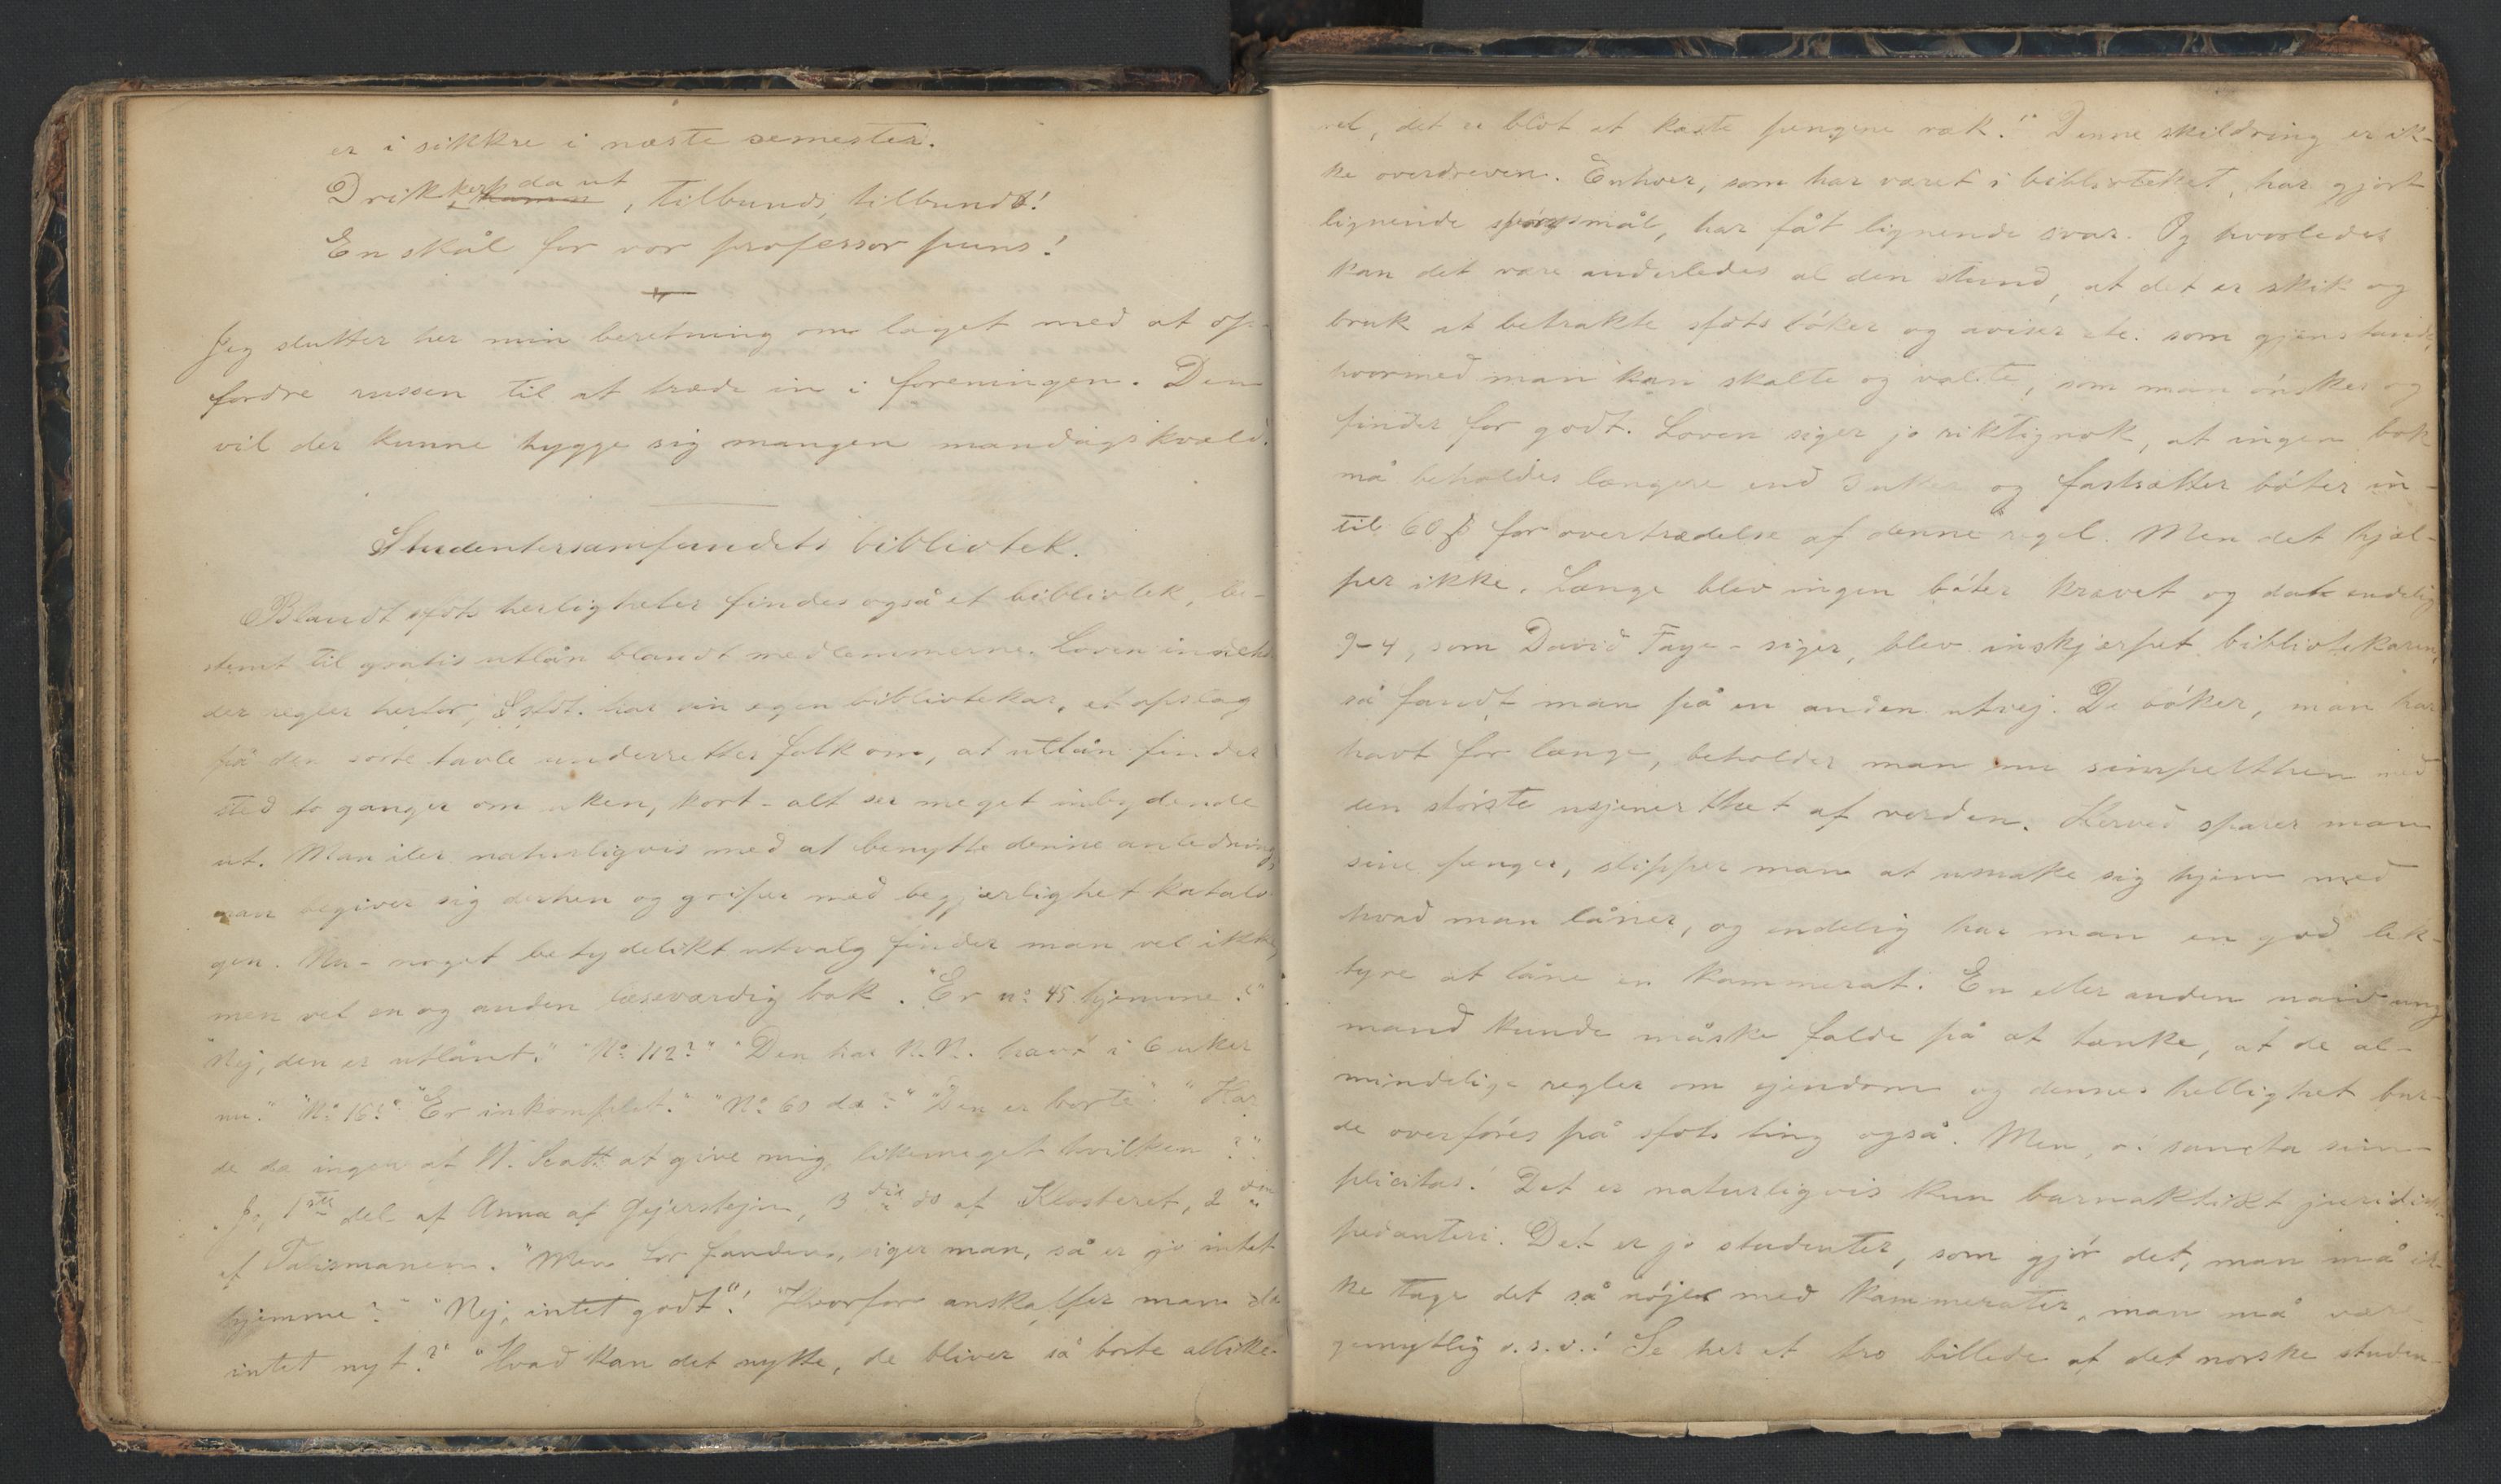 er i sikkre i næste semester.
Drikker da ut, tilbunds, tilbunds!
En skål for vor professor puns!
Jeg slutter her min beretning om laget med at op-
fordre russen til at træde in i foreningen. Den
vil der kunne hygge sig mangen mandagskvæld.
Studentersamfundets bibliotek.
Blandt sfdts herligheter findes også et bibliotek, be-
stemt til gratis utlån blandt medlemmerne. Loven innehol
der regler herfor, Sfdt. har sin egen bibliotekar, et opslag
på den sorte tavle underretter folk om, at utlån finder
sted to ganger om uken, kort - alt ser meget inbydende
ut. Man iler naturligvis med at benytte denne anledning,
man begiver sig derhen og griper med begjærlighet katalo-
gen. Nu - noget betydelikt utvalg finder man vel ikke,
men vel en og anden læseværdig bok. "Er no 45 hjemme?"
"Nej, den er utlånt." "No 112?" "Den har N.N. havt i 6 uker
nu." "No 16?" "Er inkomplet." "No 60 da?" "Den er borte." "Har
de da ingen af W. Scott at give mig, likemeget hvilken?"
"Jo, 1ste del af Anna af Gejerstejn, 3die do af Klosteret, 2den
af Talismanen. "Men for fanden, siger man, så er jo intet
hjemme?" "Nej, intet godt"! "Hvorfor anskaffer man da
intet nyt?" "Hvad kan det nytte, de bliver så borte allike-
vel, det er blot at kaste pengene væk!" Denne skildring er ik-
ke overdreven. Enhver, som har været i biblioteket, har gjort
lignende spørgsmål, har fåt lignende svar. Og hvorledes
kan det være anderledes al den stund, at det er skik og
bruk at betrakte sfdts bøker og aviser etc. som gjenstande,
hvormed man kan skalte og valte, som man ønsker og
finder for godt. Loven siger jo riktignok, at ingen bok
må beholdes længere end 3 uker og fastsætter bøter in-
til 60 β for overtrædelse af denne regel. Men det hjæl-
per ikke. Længe blev ingen bøter krævet og da endelig
9-4, som David Faye - siger, blev inskjærpet bibliotekaren,
så fandt man på en anden utvej. De bøker, man har
havt for længe, beholder man nu simpelthen med
den største usjenerthet af verden. Herved sparer man
sine penger, slipper man at umake sig hjem med
hvad man låner, og endelig har man en god lek-
tyre at låne en kammerat. En eller anden naiv ung
mand kunde måske falde på at tænke, at de al-
mindelige regler om ejendom og dennes hellighet bur-
de overføres på sfdts ting også. Men, o! sancta sim-
plicitas! Det er naturligvis kun barnaktikt juridisk
pedanteri. Det er jo studenter, som gjør det, man må ik-
ke tage det så nøje med kammerater, man må være
gemytlig o.s.v.! Se her et tro billede af det norske studen-